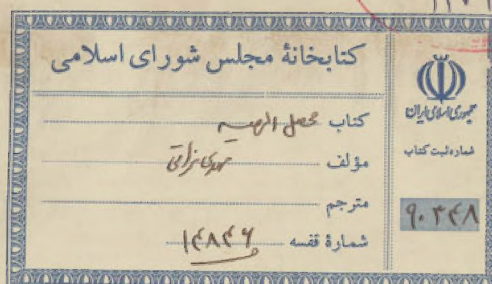 کتابخانهٔ مجلس شورای اسلامی
کتاب محصل الهیـه
مؤلف مهدی نراقی
مترجم
شمارهٔ قفسه ۱۴۸۴۶
جمهوری اسلامی ایران
شماره ثبت کتاب
۹۰۳۴۸